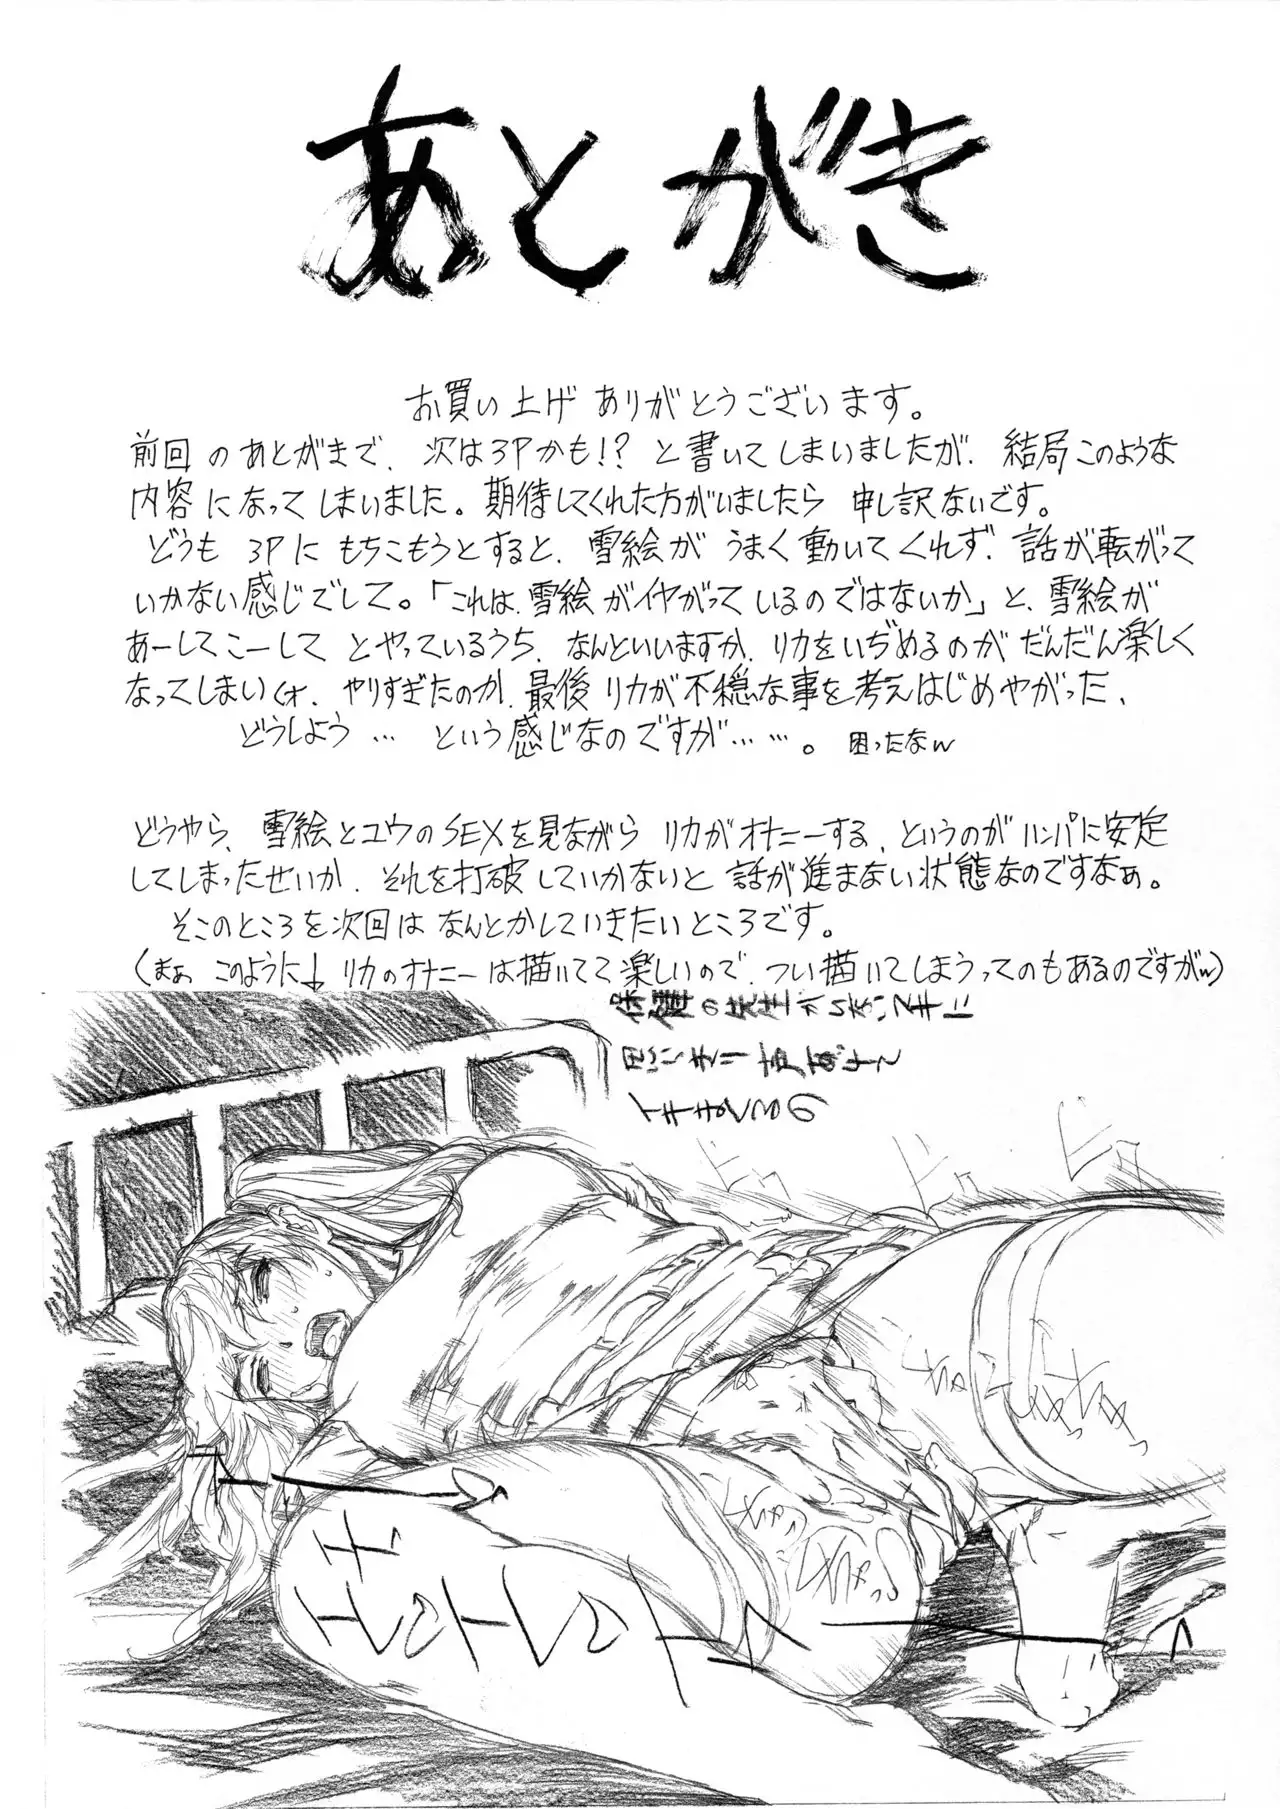 あとがき
お買い上げ ありがとうございます。
前回のあとがきで、次は3Pかも!? と書いてしまいましたが、結局このような
内容になってしまいました。期待してくれた方がいましたら 申し訳ないです。
どうも 3Pに もちこもうとすると、雪絵が うまく動いてくれず、話が転がって
いかない感じでして。「これは、雪絵がイヤがっているのではないか」と、雪絵が
あーしてこーして とやっているうち、なんといいますか、リカをいぢめるのが だんだん楽しく
なってしまいくォ、やりすぎたのか、最後リカが不穏な事を考えはじめやがった、
どうしよう … という感じなのですが……。 困ったなw
どうやら、雪絵とユウのSEXを見ながら リカがオナニーする、というのがハンパに安定
してしまったせいか、それを打破していかないと 話が進まない状態なのですなぁ。
そこのところを次回は なんとかしていきたいところです。
(まぁ このように↓ リカのオナニーは描いてて楽しいので、つい描いてしまうってのもあるのですがw)
保健の先生がいないスキに
思いきり声あげて
イキまくるの
ビク
ビク
ビク